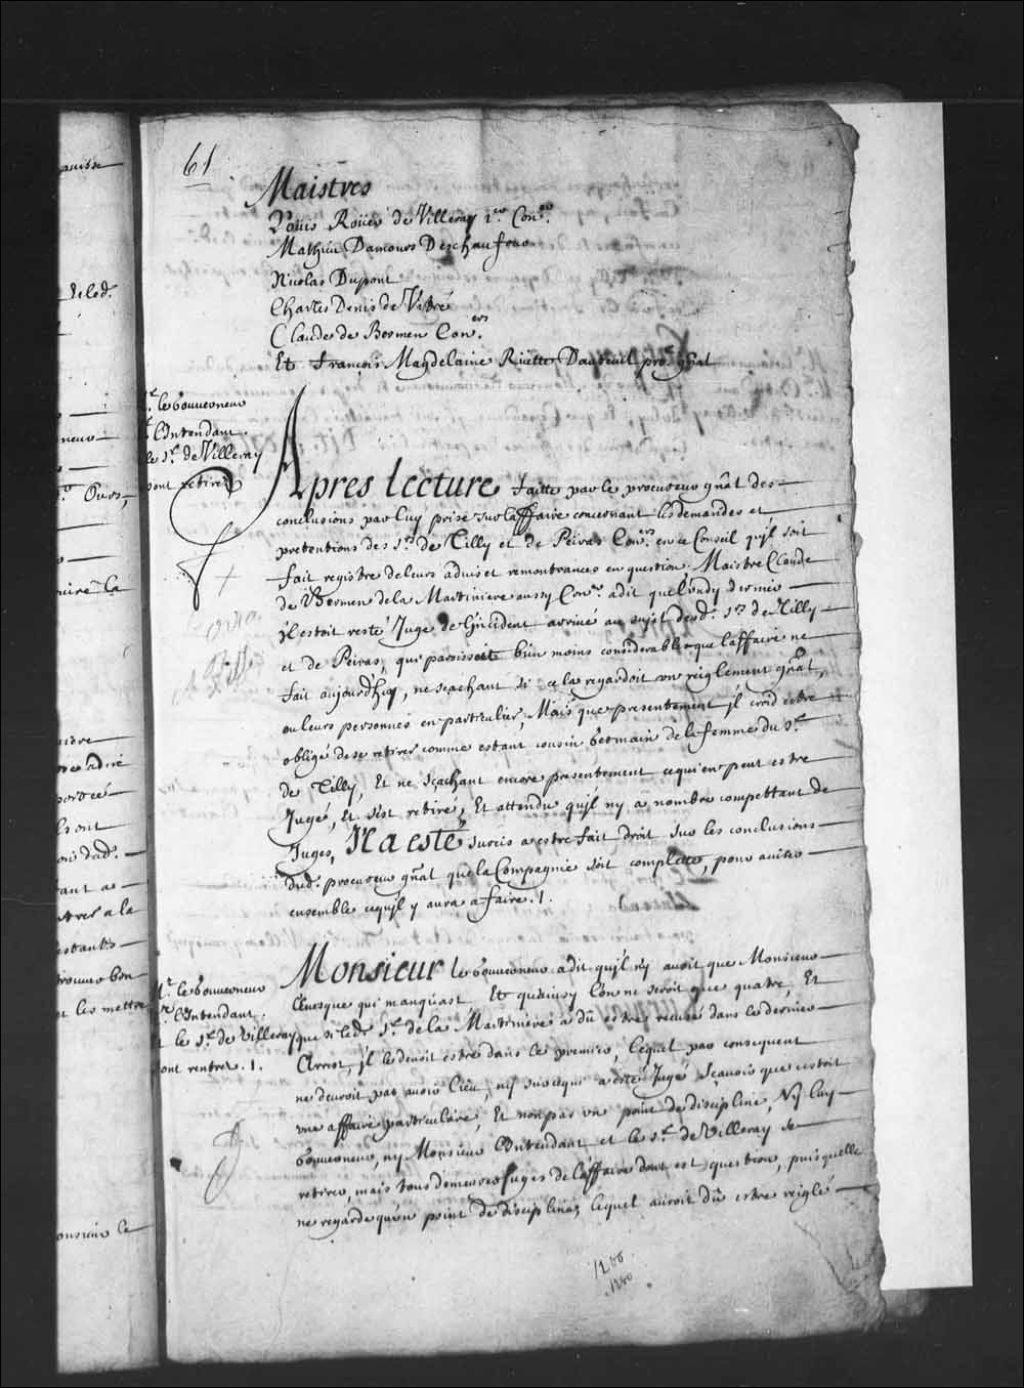 61
Maistres
Louis Roüer de Villeray 1er Conser.
Mathieu Damours Deschaufour
Nicolas Dupont
Charles Denis de Vitré
Claude de Bermen Coners
Et francois Magdelaine Ruette Dauteuil pror. gnal
r. le Gouuerneur
r. L'Intendant.
le Sr. de Villeray
sont retirez
Apres lecture faitte par le procureur gnãl des
conclusions par luy prise sur l'affaire concernant les demandes et
pretentions des Srs. de Tilly et de Peiras Coners. en ce Conseil qu'jl soit
fait registre de leurs aduis et remontrances en question. Maistre Claude
de Bermen de la Martiniere aussy Coner. a dit que lundy dernier
jl estoit resté Juge de l'jncident arriué au sujet desd. Srs. de Tilly
et de Peiras, qui paroissoit bien moins considerable que l'affaire ne
fait aujourd'huy, ne scachant si cela regardoit vn reiglement gnãl,
ou leurs personnes en particulier, Mais que presentement jl croid estre
obligé de se retirer comme estant cousin germain de la femme du Sr.
de Tilly, Et ne sçachant encore presentement ce qui en peut estre
Jugé, Et s'est retiré; Et attendu qu'jl n'y a nombre compettant de
Juges, Il a esté sursis a estre fait droit sur les conclusions
dud. procureur gnãl que la Compagnie soit complette, pour auiser
ensemble ce qu'jl y aura a faire. /.
Mr. le Gouuerneur
r. L'Intendant.
t le Sr. de Villeray
ont rentrez. /.
Monsieur le Gouuerneur a dit qu'jl n'y auoit que Monsieur
L'euesque qui manquast Et qu'ainsy l'on ne seroit que quatre, Et
que si led. Sr. de la Martiniere a dû estre recusé dans le dernier
Arrest, jl le deuoit estre dans le premier, lequel par consequent
ne deuroit pas auoir lieu, ny sur ce qui a esté Jugé Scauoir que c'estoit
vne affaire particuliere, Et non pas vn point de discipline, Ny luy
Gouuerneur, ny Monsieur L'Intendant et le Sr. de Villeray se
retirer, mais tous demeurer Juges de l'affaire dont est question, puis qu'elle
ne regarde qu'un point de discipline, lequel auroit dû estre reiglé
1200
1200